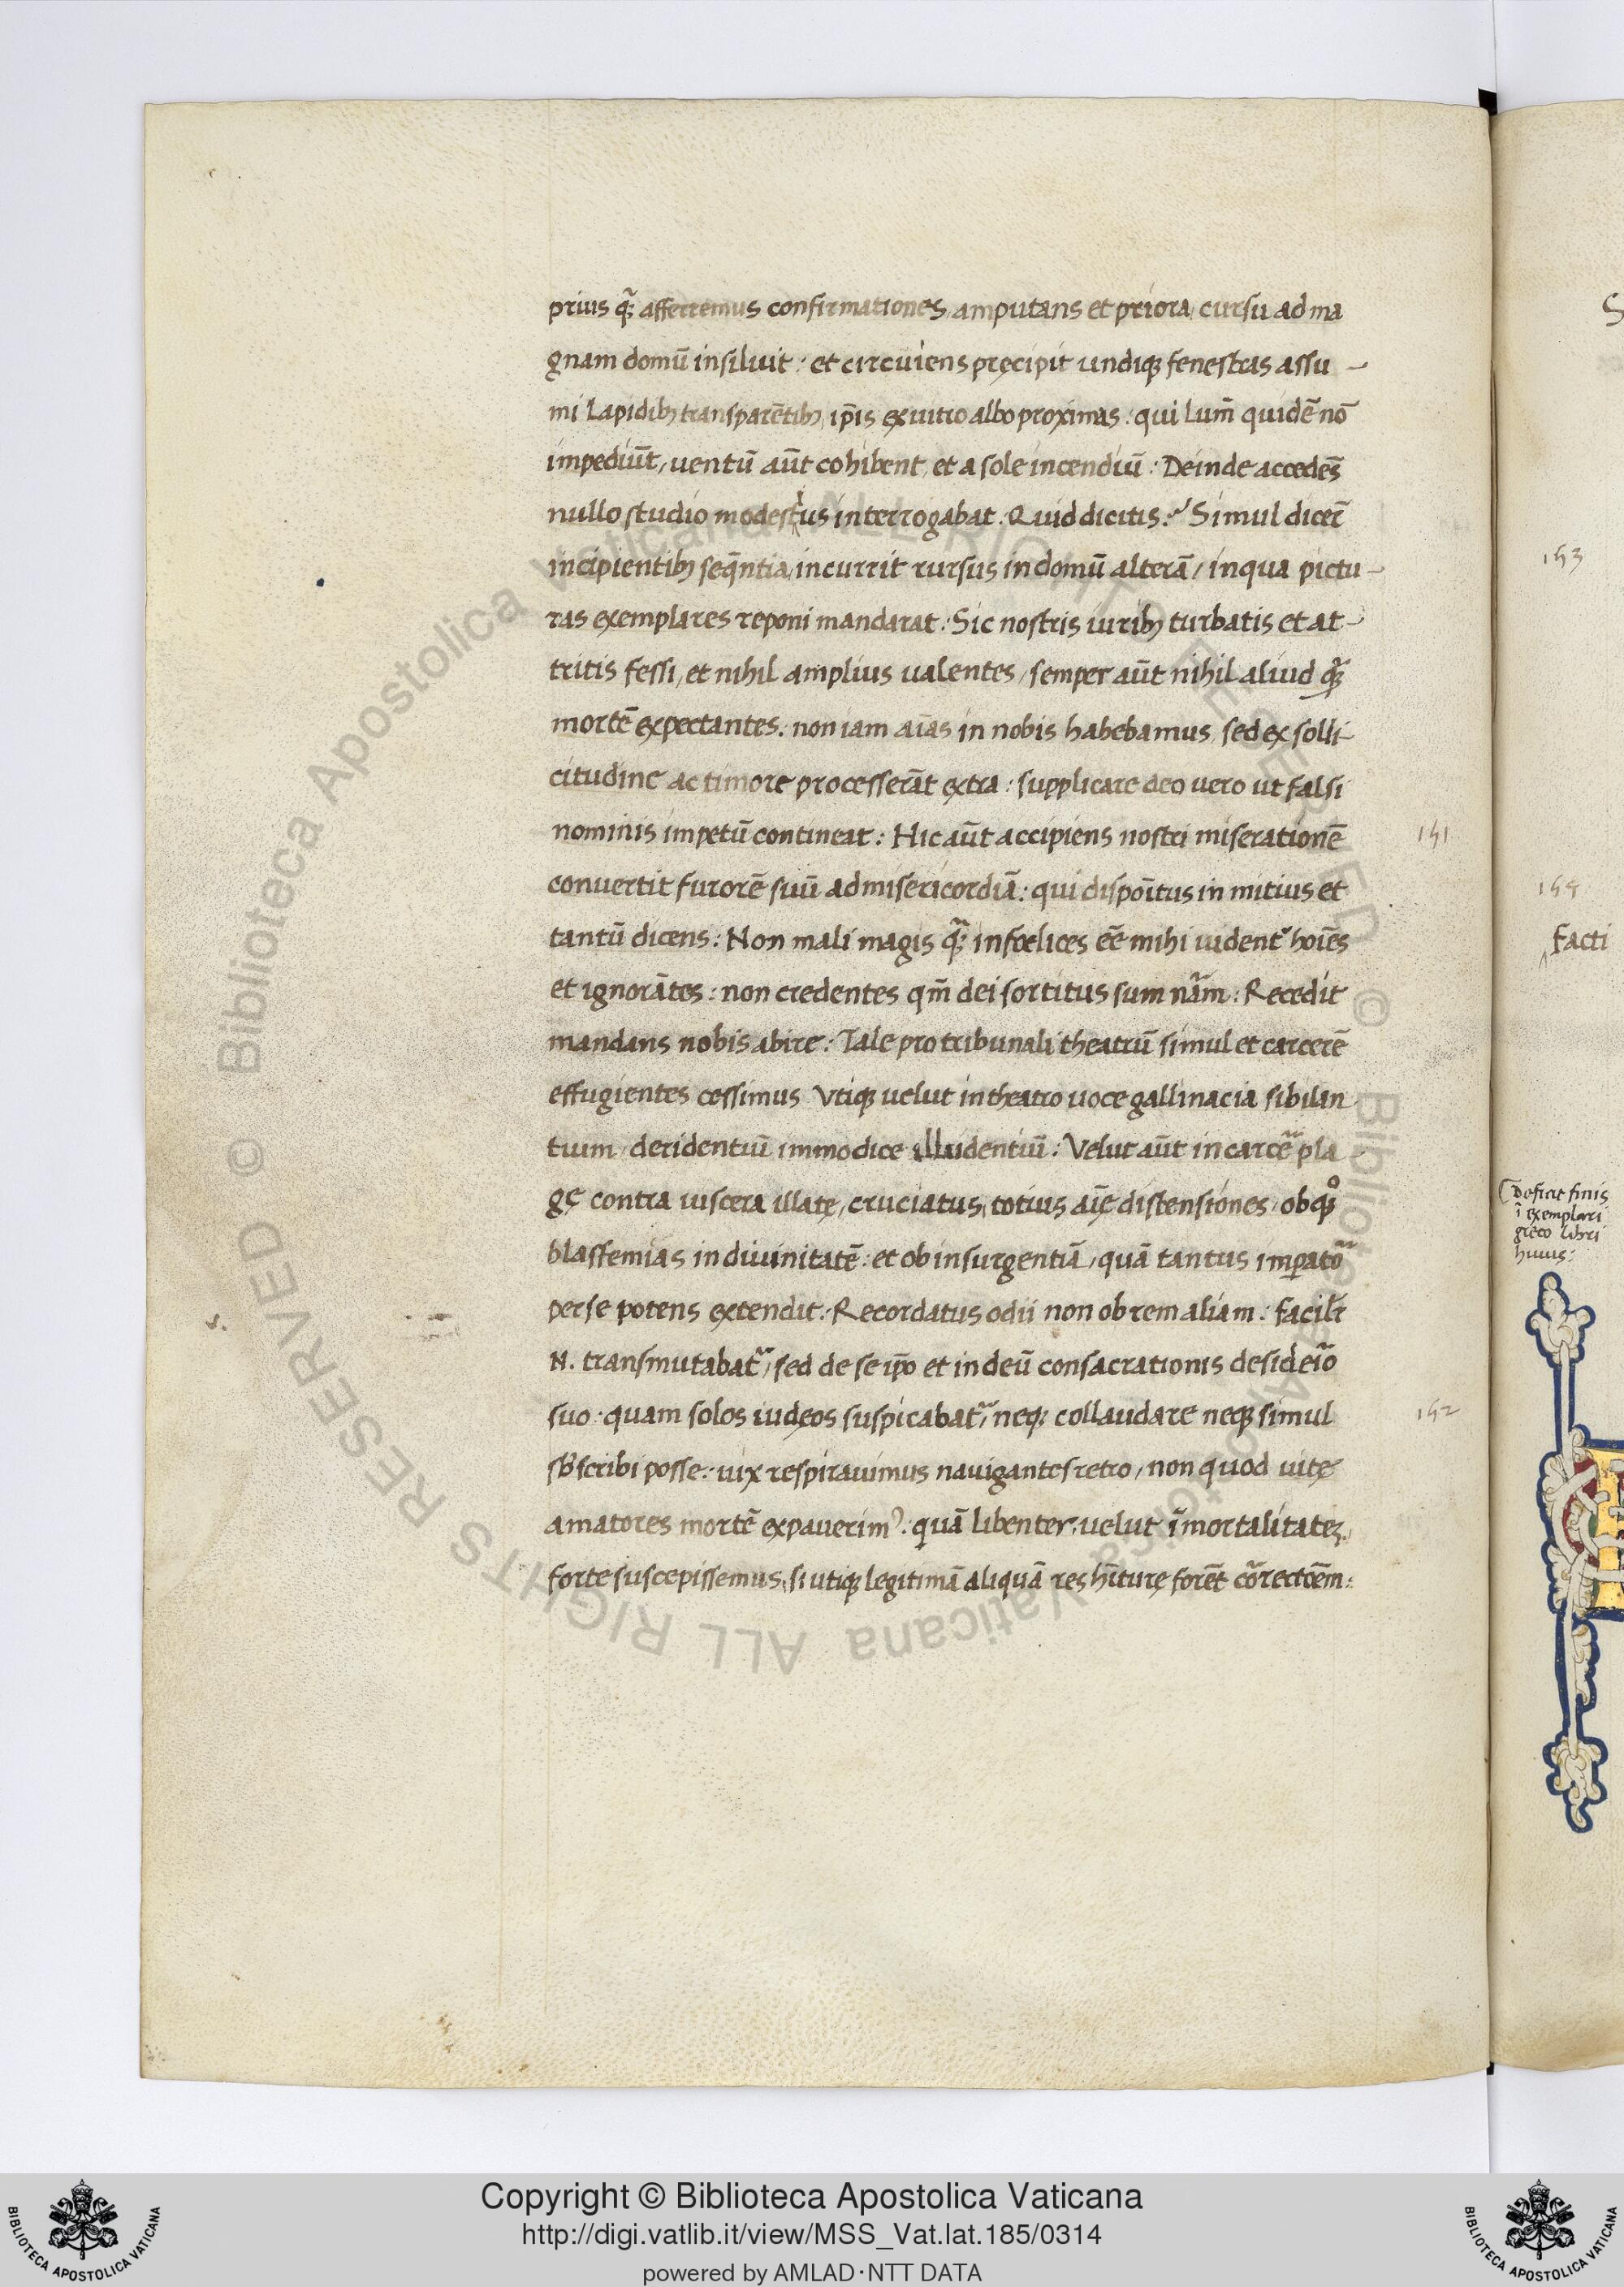 prius q̃ꝫ afferremus confirmationes, amputans et priora, cursu ad ma
gnam domũ insiluit : et circuiens pręcipit undiqꝫ fenestras assu-
mi lapidibꝫ transparẽtibꝫ, ip̃is ex uitro albo proximas : qui lum̃ quidẽ nõ
impediũt, uentũ aũt cohibent, et a sole incendiũ : Deinde accedẽs
nullo studio modestius interrogabat. Quid dicitis? Simul dicer̃
incipientibꝫ seq̃ntia, incurrit rursus in domũ alterã, in qua pictu-
ras exemplares reponi mandarat : Sic nostris iuribꝫ turbatis et at-
tritis fessi, et nihil amplius ualentes, semper aũt nihil aliud q̃ꝫ
mortẽ expectantes : non iam aĩas in nobis habebamus, sed ex solli-
citudine ac timore processerãt extra : supplicare deo uero ut falsi
nominis impetũ contineat : Hic aũt accipiens nostri miserationẽ
151
conuertit furorẽ suũ ad misericordiã : qui dispoĩtus in mitius et
tantũ dicens : Non mali magis q̃ꝫ infœlices eẽ mihi uident᷑ hoĩes
et ignorãtes : non credentes qm̃ dei sortitus sum nãm : Recedit
mandans nobis abire : Tale pro tribunali theatrũ simul et carcerẽ
effugientes cessimus Vtiqꝫ uelut in theatro uoce gallinacia sibilan
tium, deridentiũ immodice illudentiũ : Velut aũt in carcẽ pla-
gę contra uiscera illatę, cruciatus, totius aĩę distensiones, ob qꝫ
blasfemias in diuinitatẽ : et ob insurgentiã, quã tantus imꝑatõ
per se potens extendit : Recordatus odii non ob rem aliam : facilr̃
N. transmutabat᷑, sed de se ip̃o et in deũ consacrationis desideĩo
suo : quam solos iudęos suspicabat᷑, neqꝫ collaudare neqꝫ simul
152
sb̃scribi posse : uix respirauimus nauigantes retro, non quod uitę
amatores mortẽ expauerimꝰ : quã libenter, uelut ĩmortalitateꝫ
forte suscepissemus, si utiqꝫ legitimã aliquã res hĩturę forẽt cõrectõem :
S
153
155
facti
Deficit finis
ĩ exemplari
greco libri
huius :
Copyright © Biblioteca Apostolica Vaticana
http://digi.vatlib.it/view/MSS_Vat.lat.185/0314
powered by AMLAD·NTT DATA
BIBLIOTECA APOSTOLICA VATICANA
BIBLIOTECA APOSTOLICA VATICANA
© Biblioteca Apostolica Vaticana ALL RIGHTS RESERVED © Biblioteca Apostolica Vaticana ALL RIGHTS RESERVED